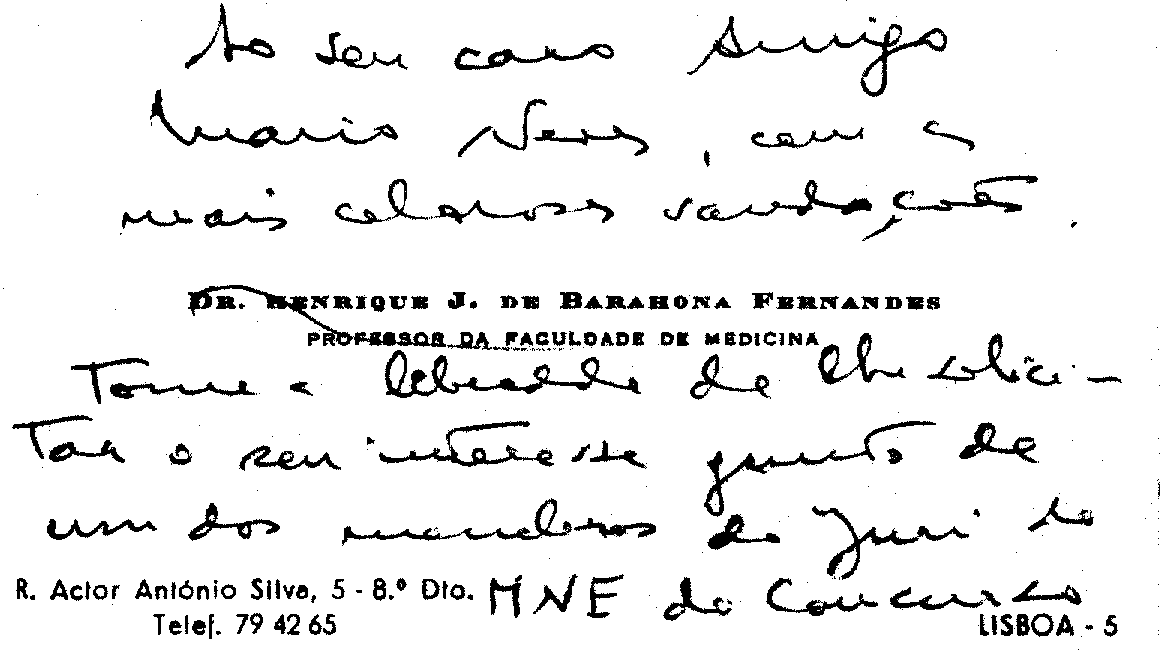 Ao seu caro Amigo
Mario Neves, com as
mais calorosas saudações.
DR. HENRIQUE J. DE BARAHONA FERNANDES
PROFESSOR DA FACULDADE DE MEDICINA
Tomo a liberdade de lhe solici-
tar o seu interesse junto de
um dos membros do Juri do
R. Actor António Silva, 5 - 8.º Dto. MNE do Concurso
Telef. 79 42 65 LISBOA - 5